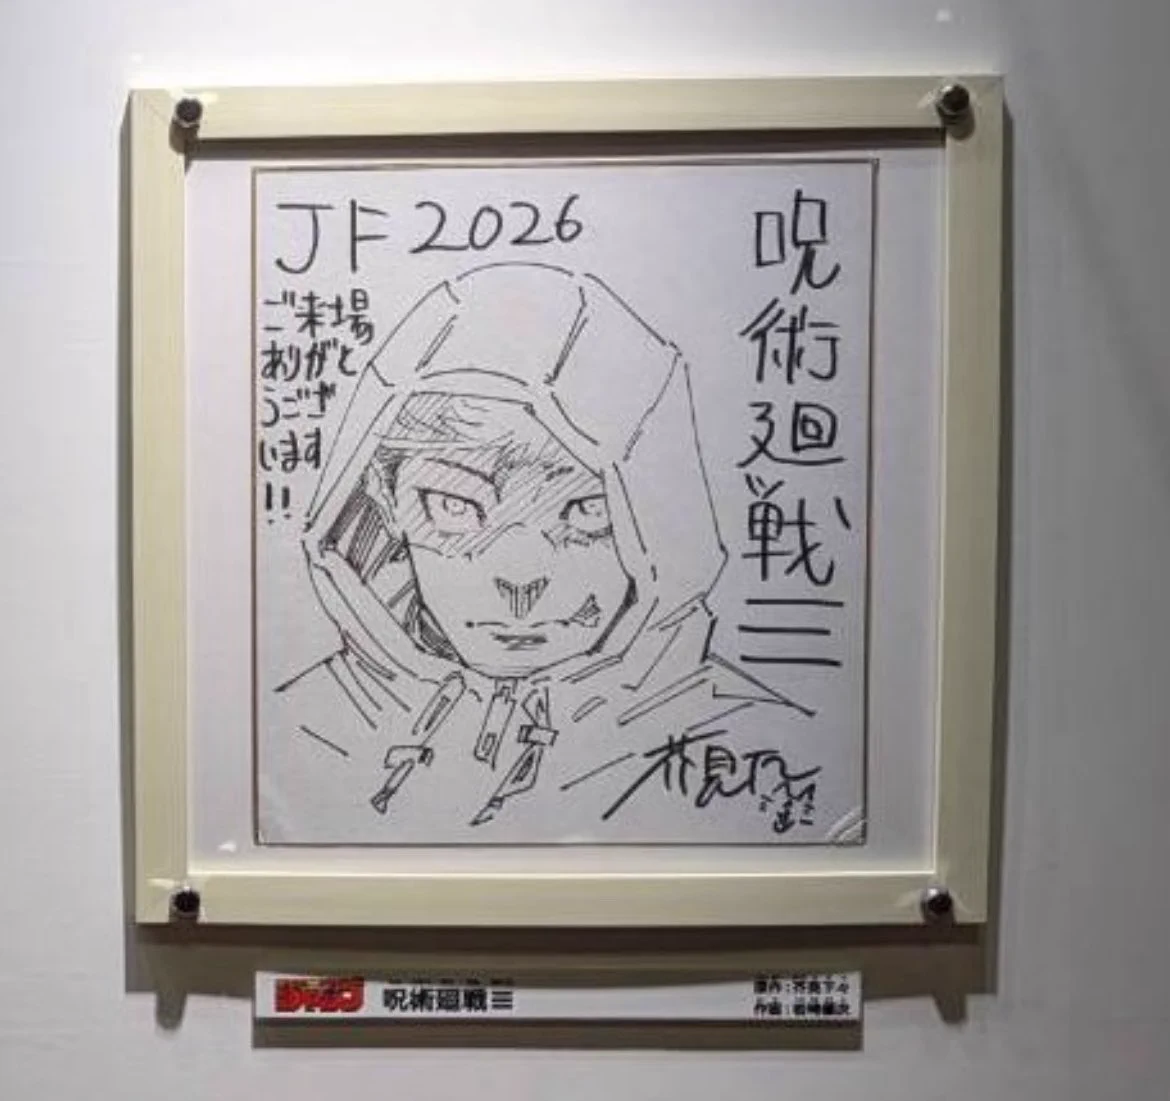 JF2026
ご来場
ありがと
うござ
います
!!
呪術廻戦三
芥見下々
ジャンプ
呪術廻戦≡
原作：芥見下々
作画：岩崎優次